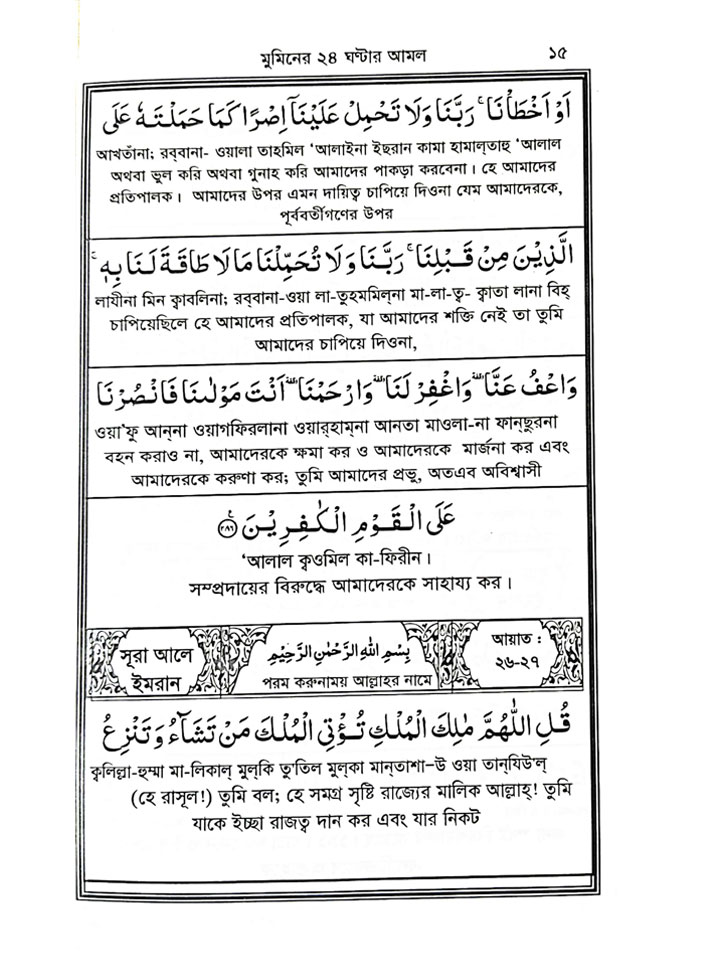 মুমিনের ২৪ ঘণ্টার আমল ১৫
اَوْ اَخْطَاْنَا ۚ رَبَّنَا وَلَا تَحْمِلْ عَلَيْنَاۤ اِصْرًا كَمَا حَمَلْتَهٗ عَلَى
আখতাঁনা; রব্বানা- ওয়ালা তাহমিল ‘আলাইনা ইছরান কামা হামাল্‌তাহু ‘আলাল
অথবা ভুল করি অথবা গুনাহ করি আমাদের পাকড়া করবেনা। হে আমাদের
প্রতিপালক। আমাদের উপর এমন দায়িত্ব চাপিয়ে দিওনা যেম আমাদেরকে,
পূর্ববর্তীগণের উপর
الَّذِيْنَ مِنْ قَبْلِنَا ۚ رَبَّنَا وَلَا تُحَمِّلْنَا مَا لَا طَاقَةَ لَنَا بِهٖ ۚ
লাযীনা মিন ক্বাবলিনা; রব্বানা-ওয়া লা-তুহমমিল্‌না মা-লা-ত্ব- ক্বাতা লানা বিহ্‌
চাপিয়েছিলে হে আমাদের প্রতিপালক, যা আমাদের শক্তি নেই তা তুমি
আমাদের চাপিয়ে দিওনা,
وَاعْفُ عَنَّا ۥ وَاغْفِرْ لَنَا ۥ وَارْحَمْنَا ۥ اَنْتَ مَوْلٰىنَا فَانْصُرْنَا
ওয়া’ফু আন্‌না ওয়াগফিরলানা ওয়ার্‌হাম্‌না আনতা মাওলা-না ফান্‌ছুরনা
বহন করাও না, আমাদেরকে ক্ষমা কর ও আমাদেরকে মার্জনা কর এবং
আমাদেরকে করুণা কর; তুমি আমাদের প্রভু, অতএব অবিশ্বাসী
عَلَى الْقَوْمِ الْكٰفِرِيْنَ ۟ ٢٨٦
‘আলাল ক্বওমিল কা-ফিরীন।
সম্প্রদায়ের বিরুদ্ধে আমাদেরকে সাহায্য কর।
সূরা আলে
ইমরান
بِسْمِ اللهِ الرَّحْمٰنِ الرَّحِيْمِ
পরম করুনাময় আল্লাহর নামে
আয়াত :
২৬-২৭
قُلِ اللّٰهُمَّ مٰلِكَ الْمُلْكِ تُؤْتِى الْمُلْكَ مَنْ تَشَآءُ وَتَنْزِعُ
ক্বলিল্লা-হুম্মা মা-লিকাল্‌ মুল্‌কি তু’তিল মুল্‌কা মান্‌তাশা–উ ওয়া তান্‌যিউ’ল্‌
(হে রাসূল!) তুমি বল; হে সমগ্র সৃষ্টি রাজ্যের মালিক আল্লাহ্! তুমি
যাকে ইচ্ছা রাজত্ব দান কর এবং যার নিকট